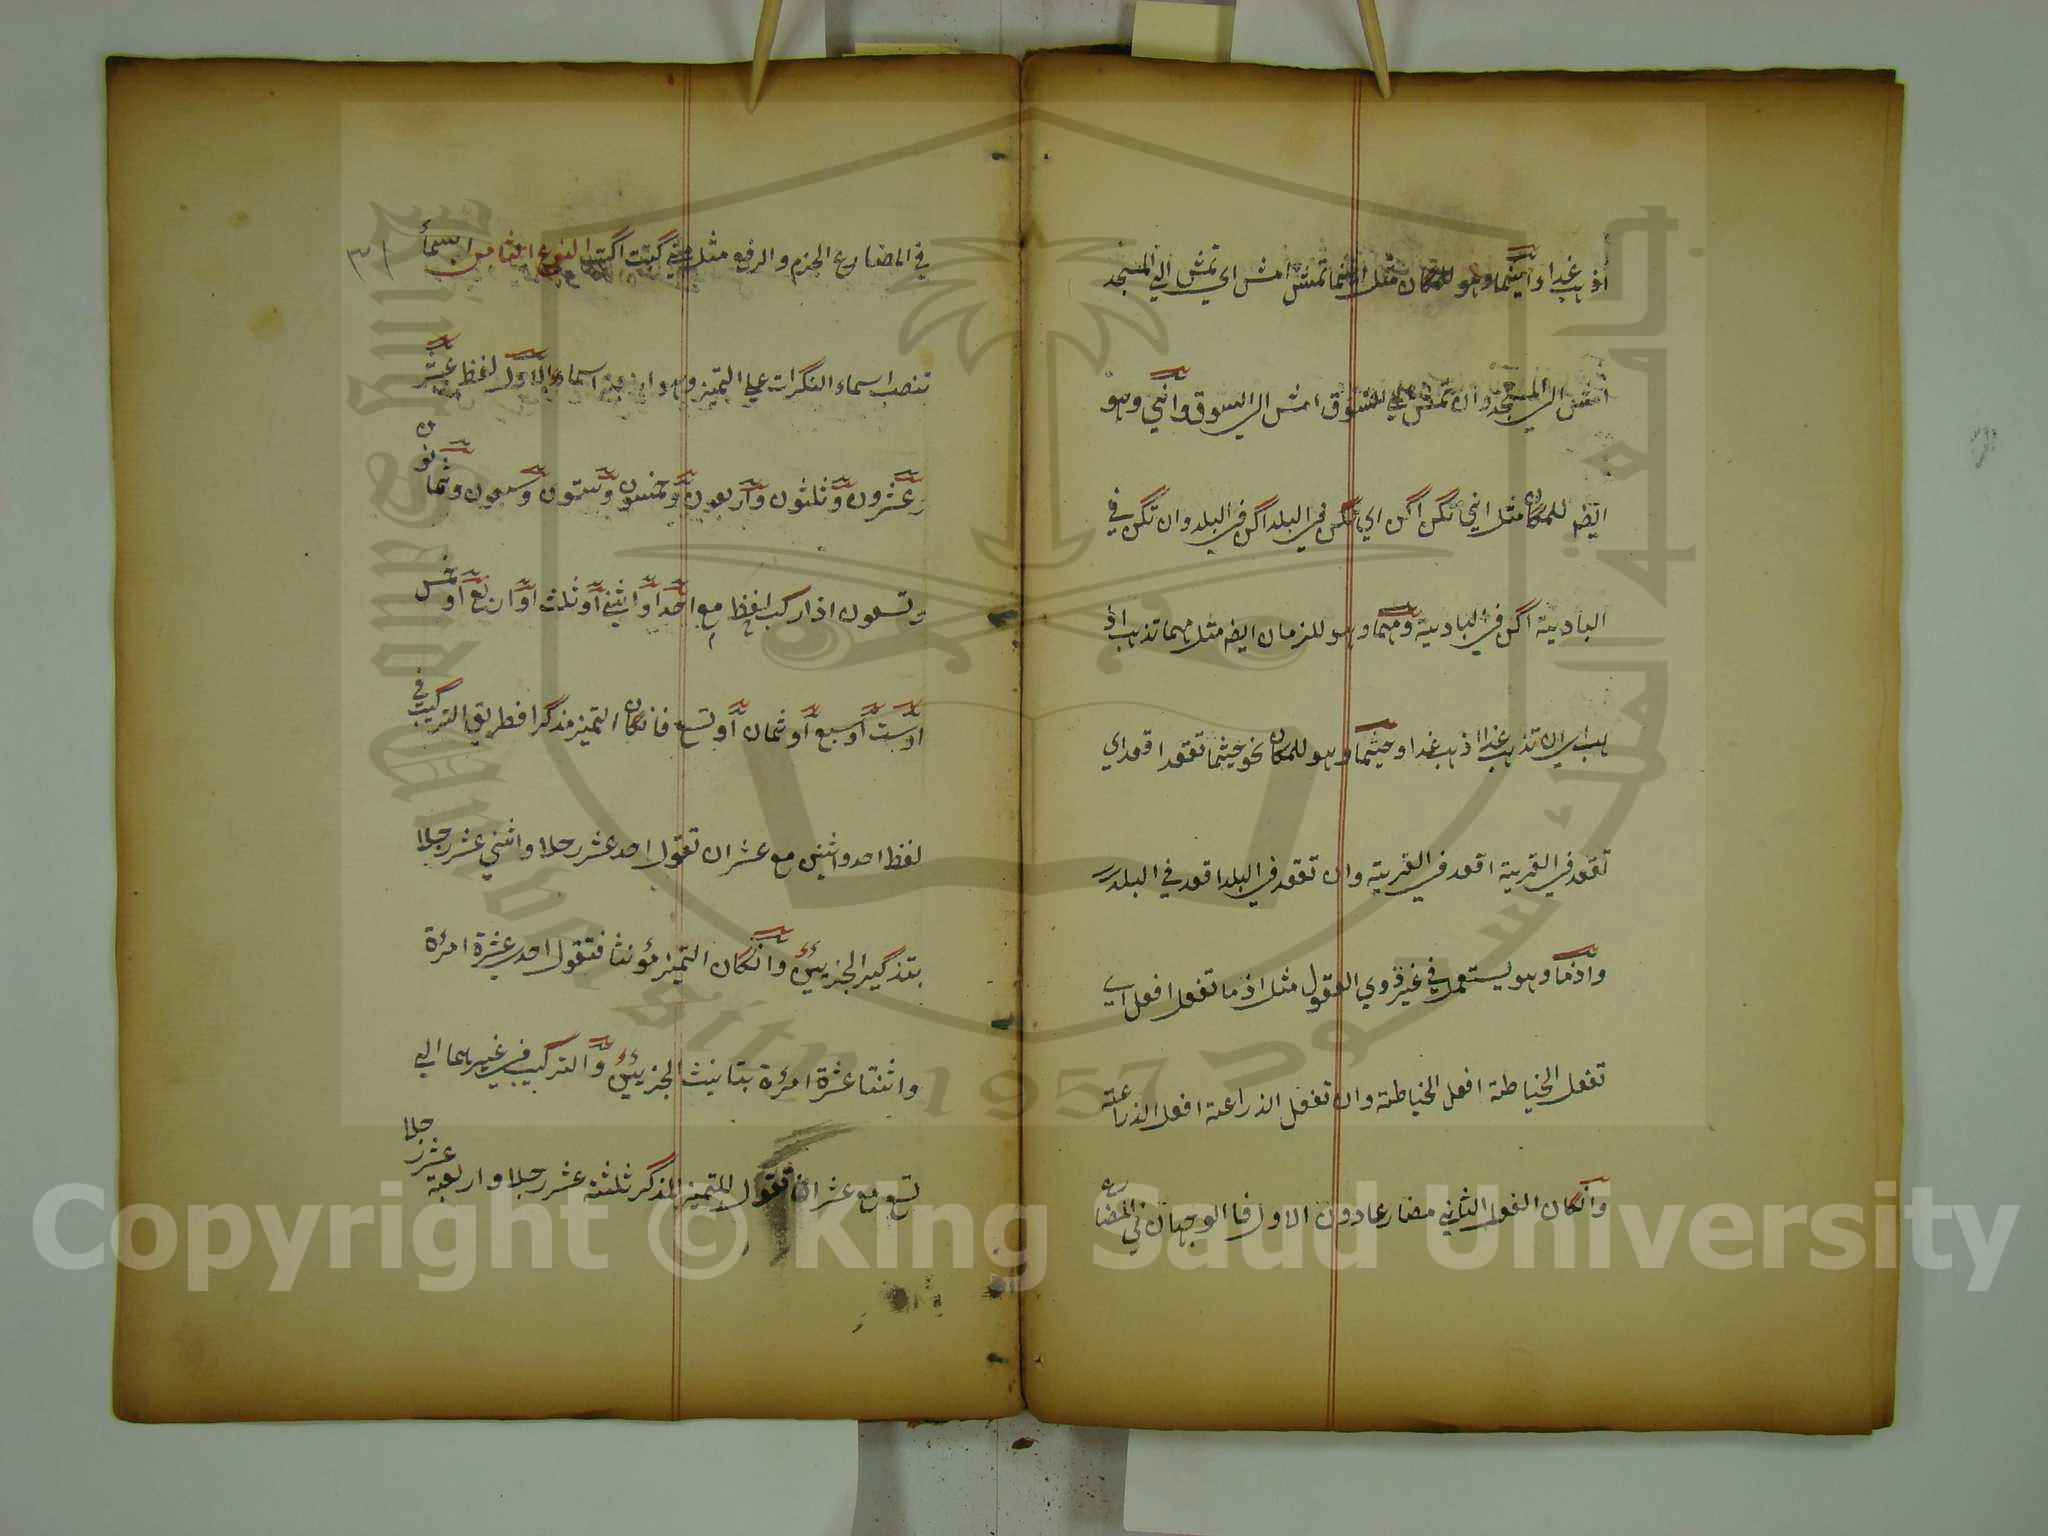 اذهب غدا واينما وهو للمكان مثل اينما تمش امش اي تمش الي المسجد
امش الي المسجد وان تمش الي السوق امش الي السوق واني وهو
ايضا للمكان مثل اني تكن اكن اي تكن في البلد اكن في البلد وان تكن في
البادية اكن في البادية ومهما وهو للزمان ايضا مثل مهما تذهب اذ
هب اي ان تذهب غدا اذهب غدا وحيثما وهو للمكان نحو حيثما تقعد اقعد اي
تقعد في القرية اقعد في القرية وان تقعد في البلد اقعد في البلد
واذما وهو يستعمل في غير ذوي العقول مثل اذما تفعل افعل اي
تفعل الخياطة افعل الخياطة وان تفعل الزراعة افعل الزراعة
وانكان الفعل الثاني مضارعا دون الاول فالوجهان في المضارع
٣١
في المضارع الجزم والرفع مثل متي كتبت اكتب النوع الثامن اسما
تنصب اسماء النكرات علي التميز وهو اربعة اسماء الاول لفظ عشر
وعشرون وثلثون واربعون وخمسون وستون وسبعون وثمانون
وتسعون اذا ركب لفظ مع احد او اثني او ثلث او اربع او خمس
او ست او سبع او ثمان او تسع فانكان التميز مذكرا فطريق التركيب في
لفظ احد واثنين مع عشر ان تقول احد عشر رجلا واثني عشر رجلا
بتذكير الجزيين وانكان التميز مؤنثا فتقول احدي عشرة امرءة
واثنتا عشرة امرءة بتانيث الجزيين والتركيب في غيرهما الي
تسع مع عشر ان تقول للتميز المذكر ثلثة عشر رجلا واربعة عشر رجلا
جامعة الملك سعود
King Saud University
1957
Copyright © King Saud University